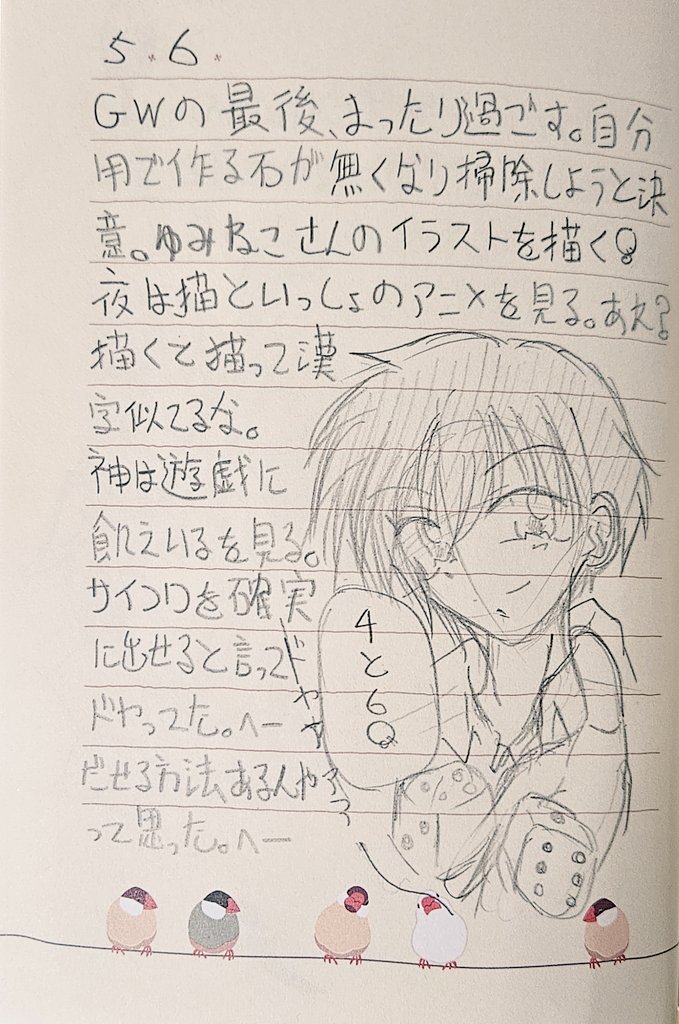 5.6.
GWの最後、まったり過ごす。自分
用で作る石が無くなり掃除しようと決
意。ゆみねこさんのイラストを描く。
夜は猫といっしょのアニメを見る。あえ?
描くと猫って漢
字似てるな。
神は遊戯に
飢えいるを見る。
サイコロを確実
に出せると言って
ドヤってた。へー
だせる方法、あるんや
って思った。へー
4と6。
ドヤァ